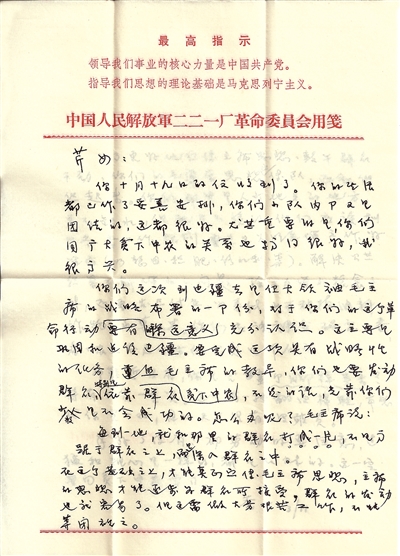 最高指示
领导我们事业的核心力量是中国共产党。
指导我们思想的理论基础是马克思列宁主义。
中国人民解放軍二二一厂革命委員会用笺
芹如：
你十月十九日的信收到了。你的生活
都已作了妥善安排，你们小队内部又是
团结的，这都很好。尤其重要的是你们
同广大贫下中农的关系也搞得很好，我
很高兴。
你们这次到边疆去是伟大领袖毛主
席的战略布署的一部份，对于你们的这个革
命行动要有充分认识。这主要是
巩固和建设边疆。要完成这项具有战略性
的任务，遵照毛主席的教导，你们也要发动
群众，依靠群众贫下中农，不然的话，光靠你们
是不会成功的。怎么办呢？毛主席说：
每到一地，就和那里的群众打成一片，不是高
踞于群众之上，而是深入群众之中。
在这个基础上，才能真的宣传毛主席思想，主席
的思想才能逐步为群众所接受，群众的发动
也就容易了。但这要做大量艰苦工作，不能
草